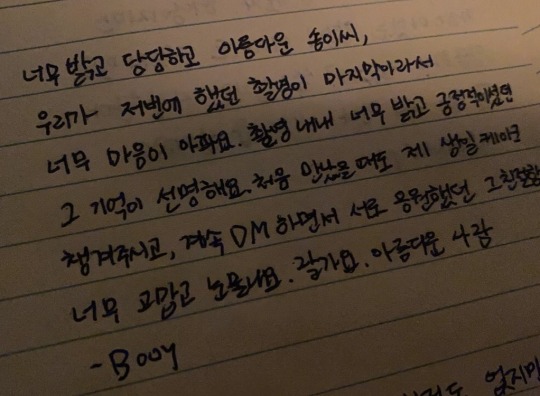 너무 밝고 당당하고 아름다운 송이씨,
우리가 저번에 했던 촬영이 마지막이라서
너무 마음이 아파요. 촬영 내내 너무 밝고 긍정적이셨던
그 기억이 선명해요. 처음 만났을때도 제 생일 케이크
챙겨주시고, 계속 DM 하면서 서로 응원했던 그 친절함
너무 고맙고 눈물나요. 잘가요. 아름다운 사람
- Booy
없지만